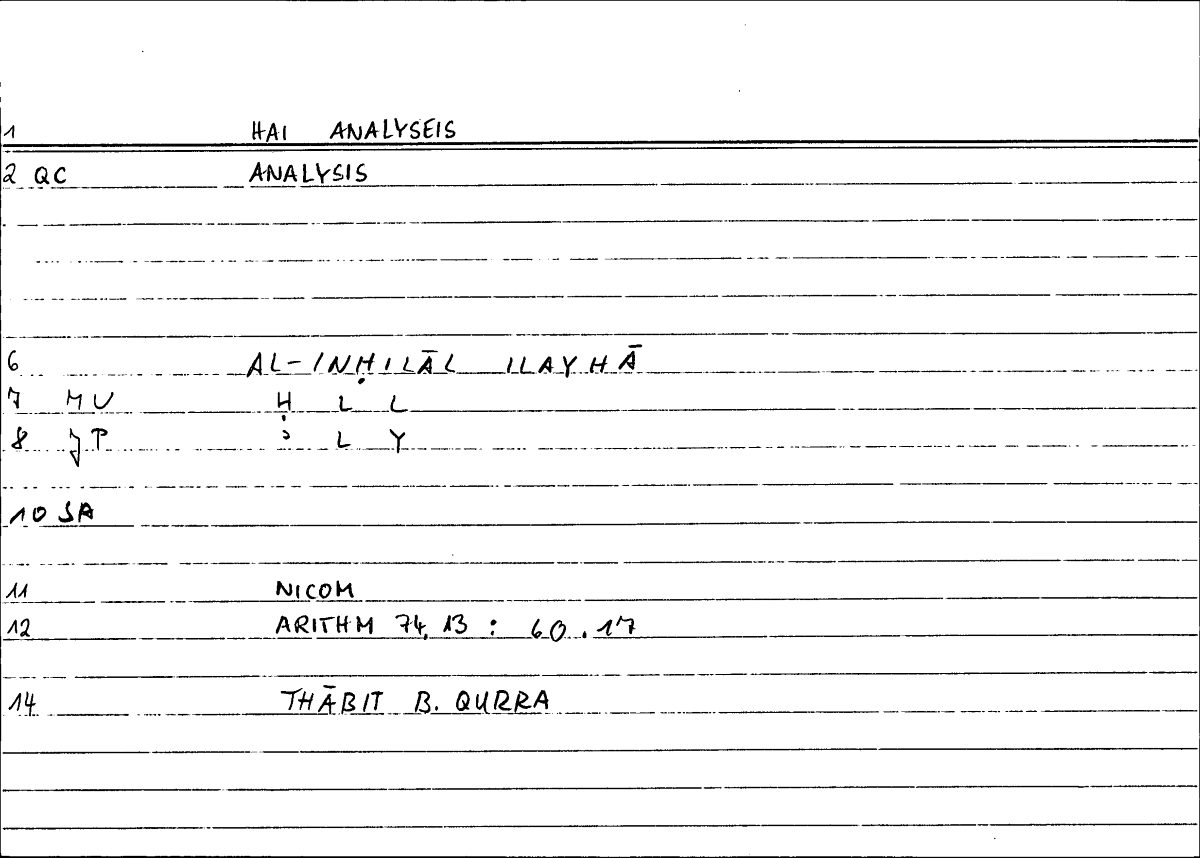 1 HAI ANALYSEIS
2 QC ANALYSIS
6 AL-INḤILĀL ILAYHĀ
7 MU Ḥ L L
8 JP ʾ L Y
10 SA
11 NICOM
12 ARITHM 74,13 : 60.17
14 THĀBIT B. QURRA